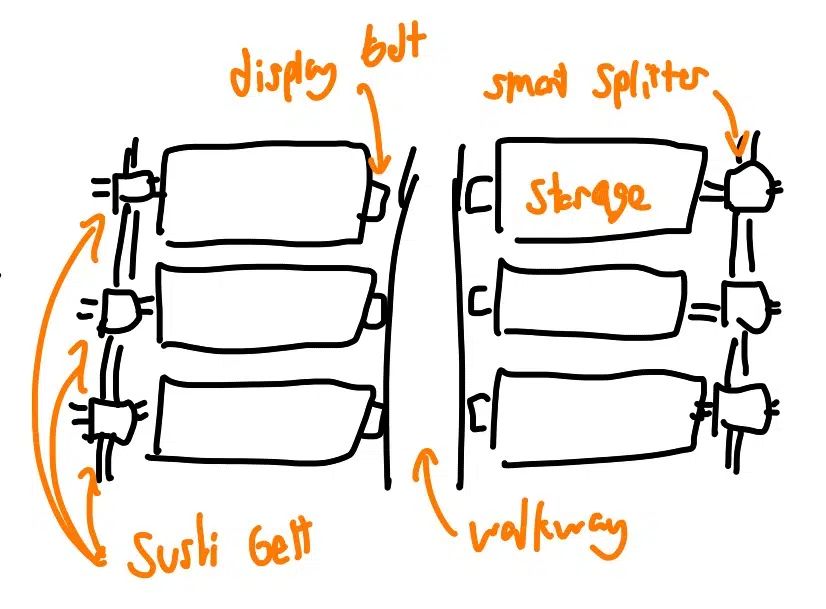 display belt
smart splitter
storage
sushi belt
walkway